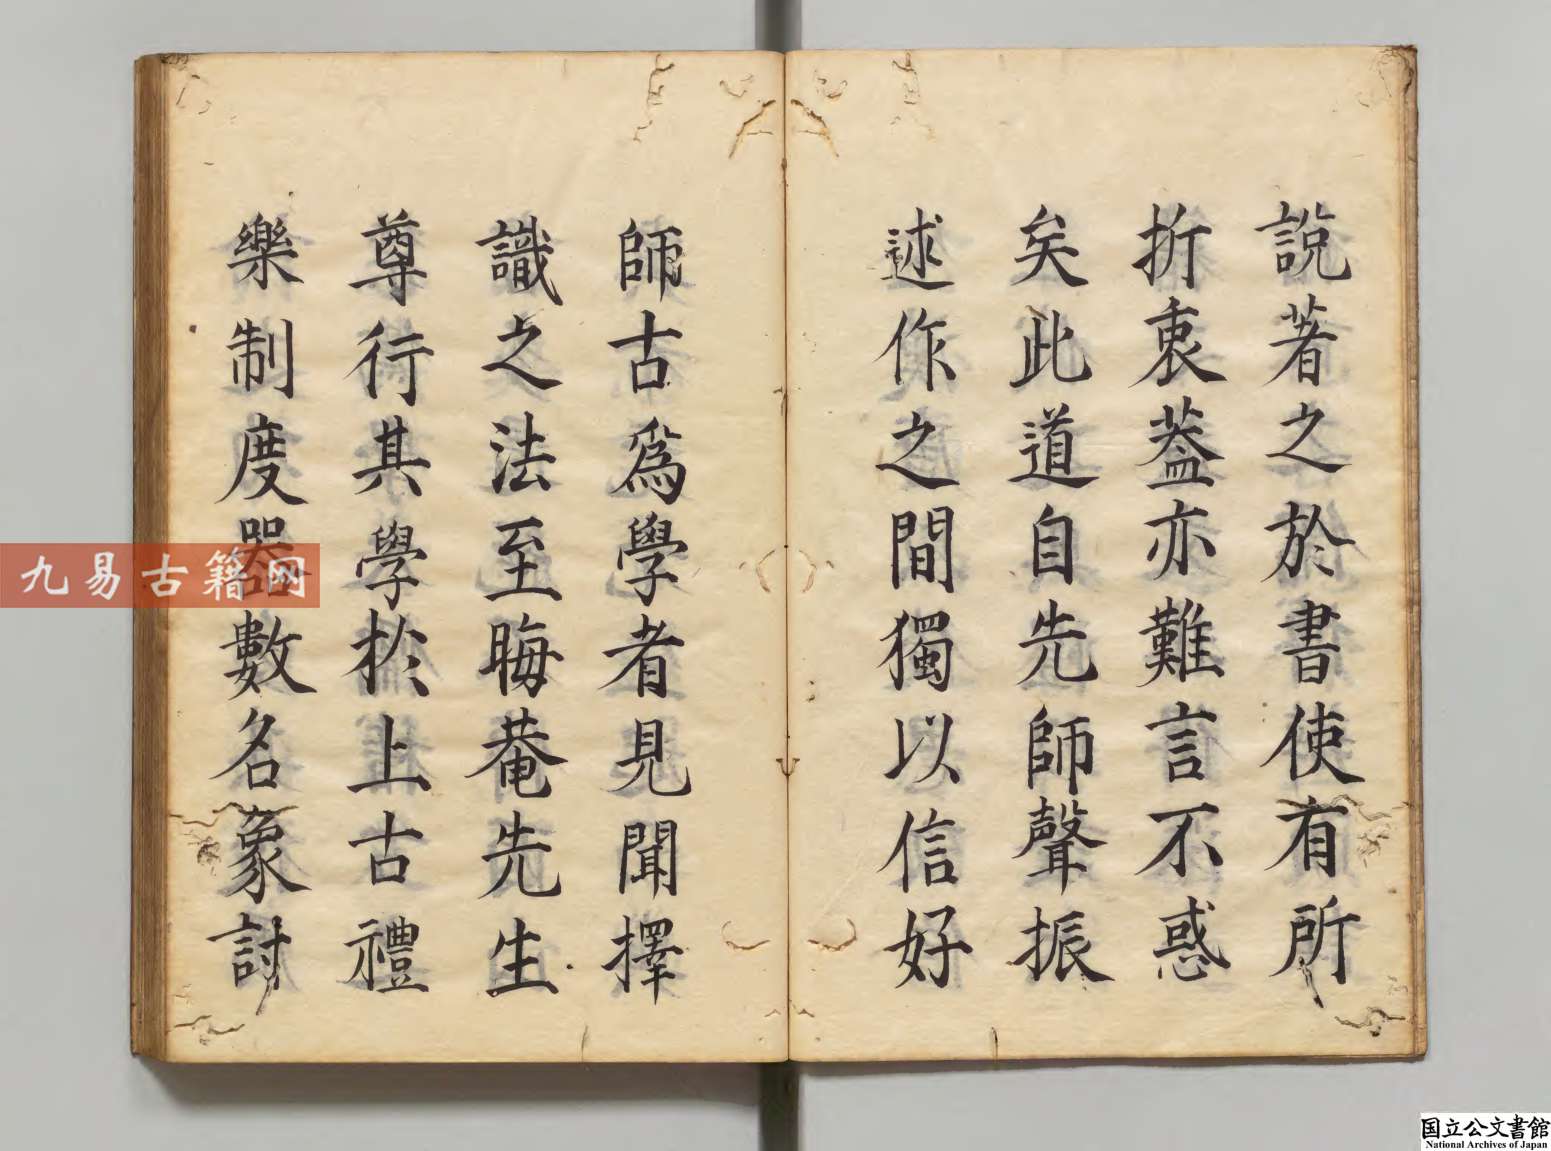 說著之於書使有所
折衷蓋亦難言不惑
矣此道自先師聲振
述作之間獨以信好
師古爲學者見聞擇
識之法至晦菴先生
尊行其學於上古禮
樂制度器數名象討
九易古籍网
国立公文書館
National Archives of Japan